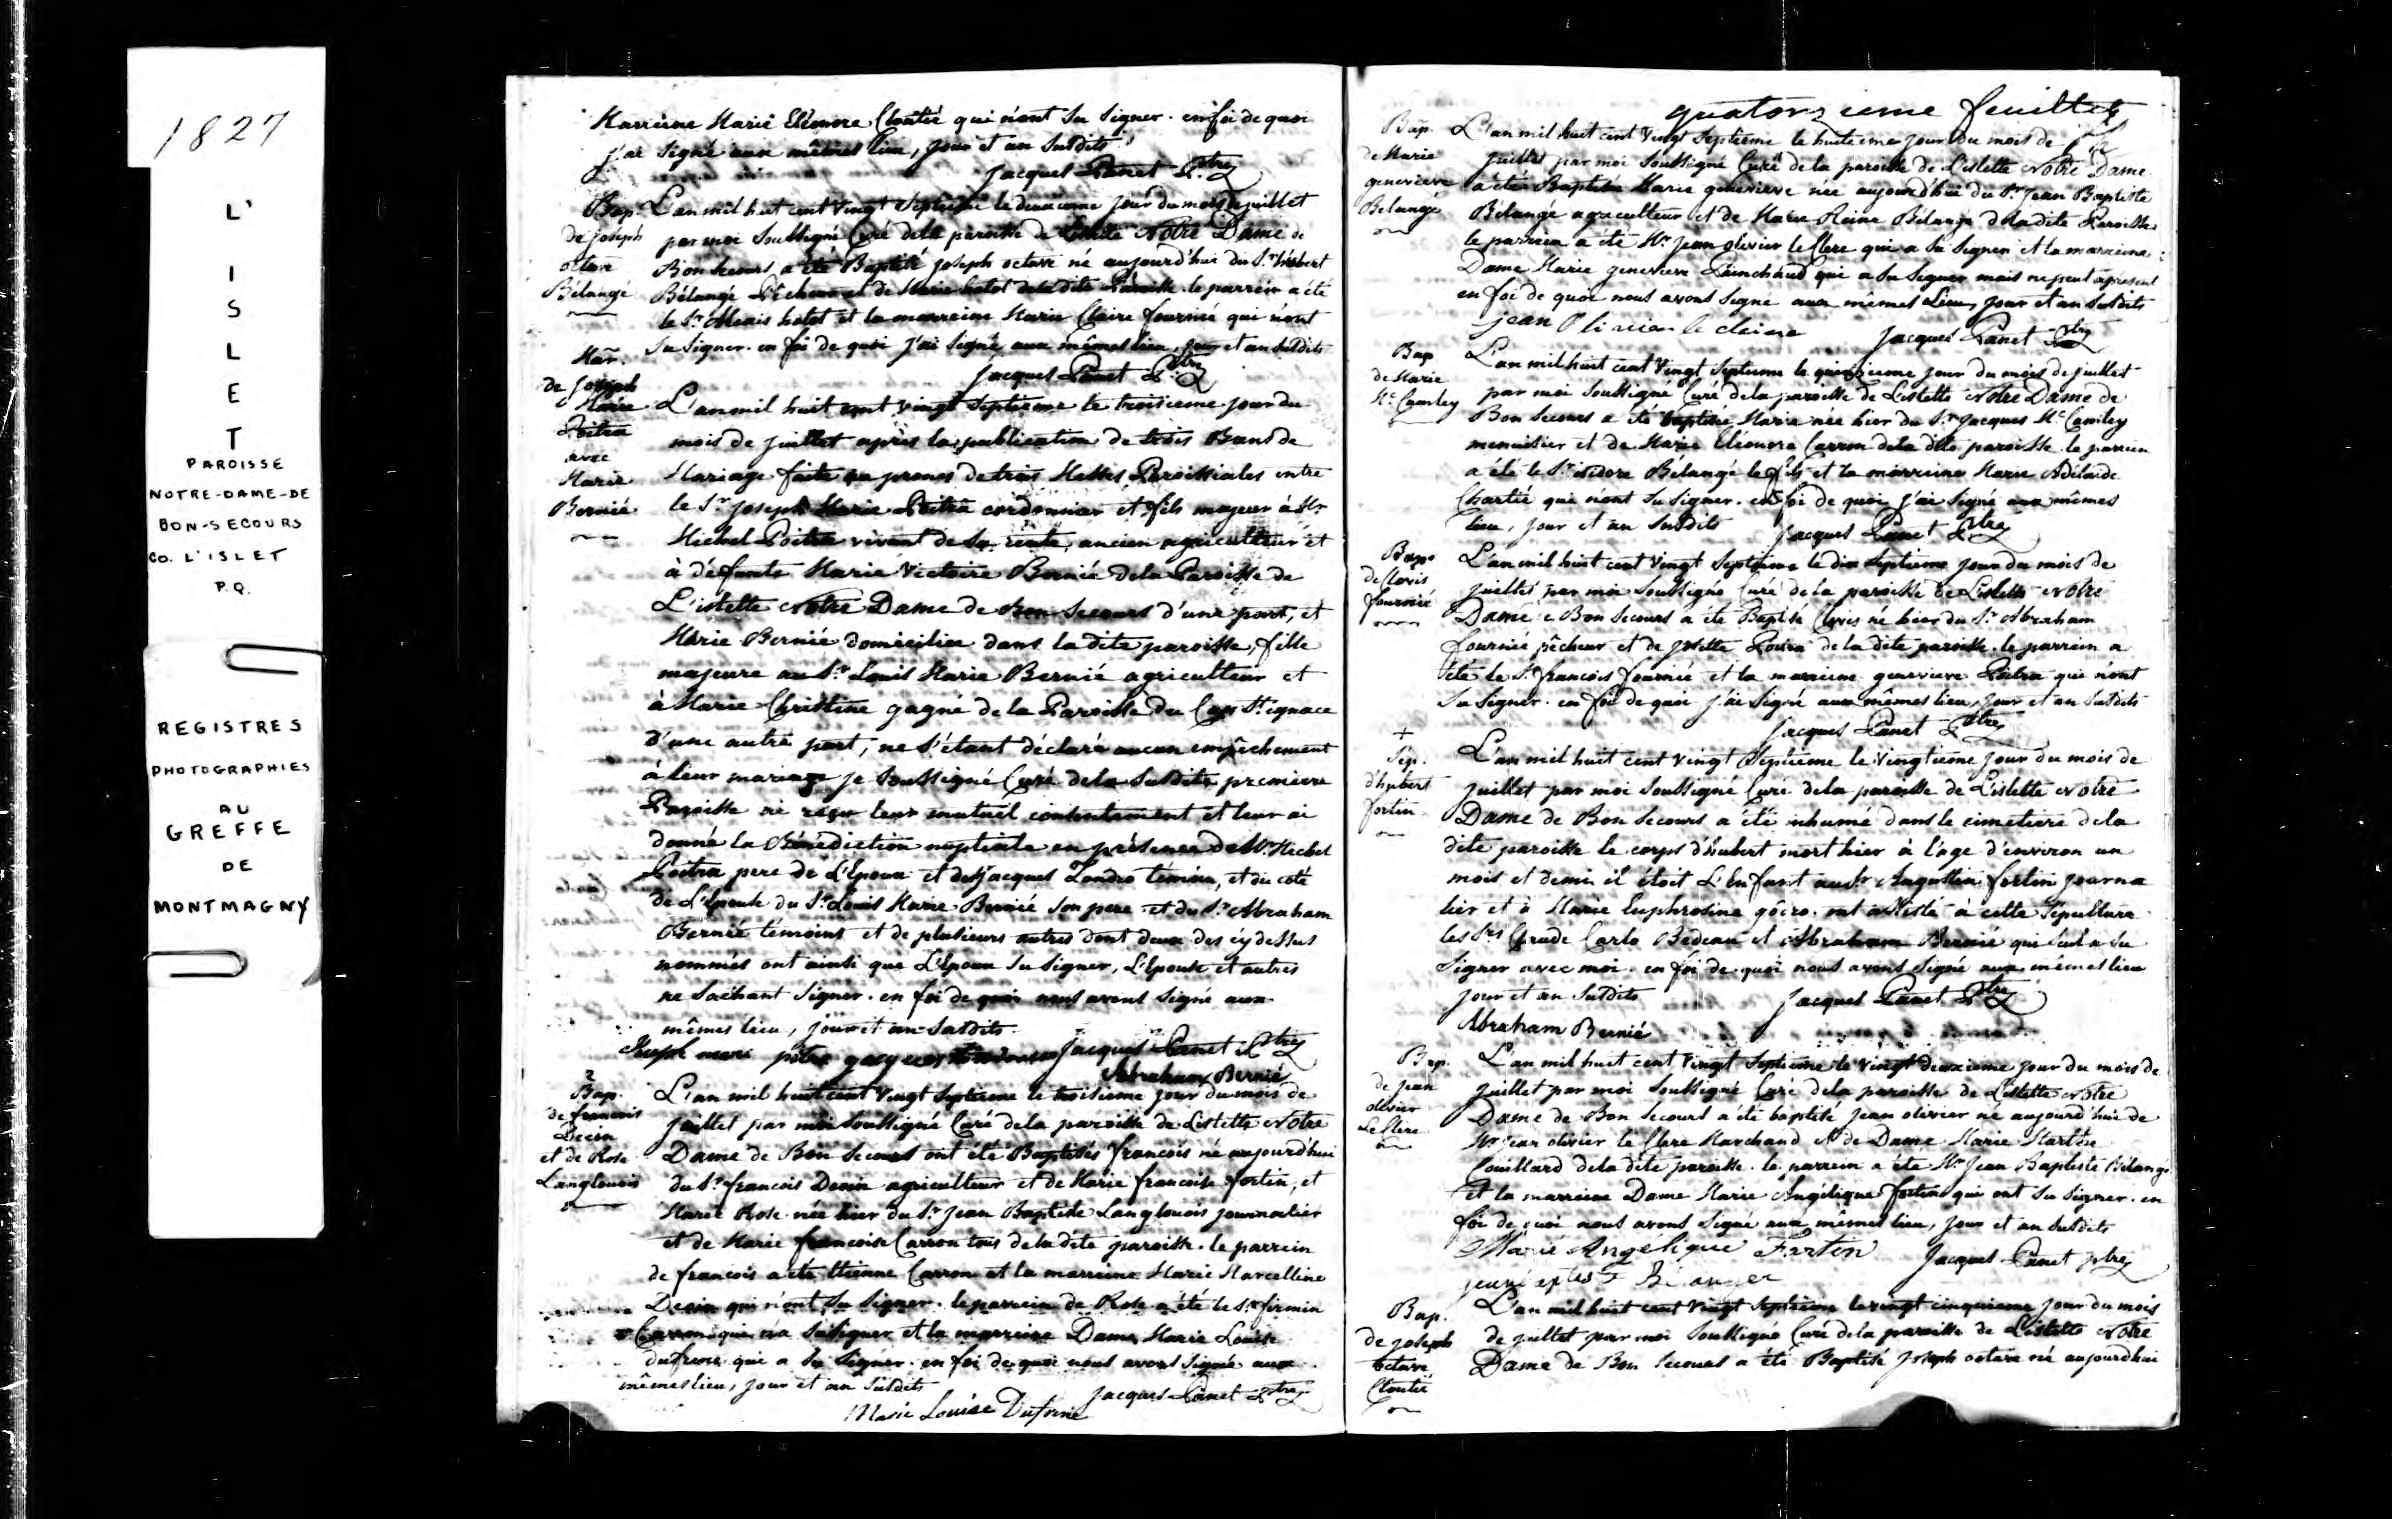 1827
L'
I
S
L
E
T
PAROISSE
NOTRE-DAME-DE
BON-SECOURS
CO. L'ISLET
P.Q.
REGISTRES
PHOTOGRAPHIES
AU
GREFFE
DE
MONTMAGNY
Marrine Marie Eléonore Cloutié qui n'ont su signer. en foi de quoi
j'ai signé aux mêmes lieu, jour et an susdits
Jacques Panet Ptre
Bap.
de joseph
octave
Bélangé
L'an mil huit cent vingt septieme le deuxieme jour du mois de juillet
par moi soussigné Curé de la paroisse de L'islette Notre Dame de
Bon Secours a été Baptisé joseph octave né aujourd'hui du Sr
Bélangé Pêcheur et de Marie de la dite Paroisse. le parrein a été
le Sr et la marreine Marie Claire fournié qui n'ont
su signer. en foi de quoi j'ai signé aux mêmes lieu, jour et an susdits
Jacques Panet Ptre
Mar.
de Joseph
Marie
Poitra
avec
Marie
Bernié
L'an mil huit cent vingt septieme le troisieme jour du
mois de juillet après la publication de trois Bans de
Mariage faite au prones de trois Messes Paroissiales entre
le Sr joseph Marie Poitra cordonnier et fils majeur à Mr
Michel Poitra vivant de sa rente, ancien agriculteur et
à défunte Marie Victoire Bernié de la Paroisse de
L'islette Notre Dame de Bon Secours d'une part, et
Marie Bernié domiciliée dans la dite paroisse, fille
majeure au Sr Louis Marie Bernié agriculteur et
à Marie Christine gagné de la Paroisse du Cap St ignace
d'une autre part, ne s'étant déclaré aucun empêchement
à leur mariage je soussigné Curé de la susdite premiere
Paroisse ai reçu leur mutuel consentement et leur ai
donné la Bénédiction nuptiale en présence de Mr Michel
Poitra pere de L'Epoux et de jacques témoin, et du coté
de L'Epouse du Sr Louis Marie Bernié son pere et du Sr Abraham
Bernié témoins et de plusieurs autres dont deux des cy dessus
nommés ont ainsi que L'Epoux su signer, L'Epouse et autres
ne sachant signer. en foi de quoi nous avons signé aux
mêmes lieu, jour et an susdits.
Joseph mari Jacques Panet Ptre
Abraham Bernié
2
Bap.
de francois
et de Rose
Langlouois
L'an mil huit cent vingt septieme le troisieme jour du mois de
juillet par moi soussigné Curé de la paroisse de L'islette Notre
Dame de Bon Secours ont été Baptisés francois né aujourd'hui
du Sr francois agriculteur et de Marie francoise fortin, et
Marie Rose née hier du Sr Jean Baptiste Langlouois journalier
et de Marie francoise Carron tous de la dite paroisse. le parrein
de francois a été Etienne Carron et la marreine Marie Marcelline
qui n'ont su signer. le parrein de Rose a été le Sr firmin
Carron qui n'a su signer et la marreine Dame Marie Louise
dufrene qui a su signer. en foi de quoi nous avons signé aux
mêmes lieu, jour et an susdits
Jacques Panet Ptre
Marie Louise Dufrene
quatorzieme feuillet
Bap.
de Marie
genevieve
Bélangé
L'an mil huit cent vingt septieme le huitieme jour du mois de
juillet par moi soussigné Curé de la paroisse de L'islette Notre Dame
a été Baptisée Marie genevieve née aujourd'hui du Sr Jean Baptiste
Bélangé agriculteur et de Marie Reine Bélangé de la dite Paroisse
le parrein a été Mr jean olivier le Clerc qui a su signer et la marreine
Dame Marie genevieve Painchaud qui a su signer mais ne peut apresent
en foi de quoi nous avons signé aux mêmes Lieu, jour et an susdits
jean Olivier le clairc Jacques Panet Ptre
Bap
de Marie
Mc Camley
L'an mil huit cent vingt septieme le quinzieme jour du mois de juillet
par moi soussigné Curé de la paroisse de L'islette Notre Dame de
Bon Secours a été baptisée Marie née hier du Sr Jacques Mc Camley
menuisier et de Marie Eléonore Carron de la dite paroisse. le parrein
a été le Sr isidore Bélangé le fils et la marreine Marie Adélaide
Chartié qui n'ont su signer. en foi de quoi j'ai signé aux mêmes
lieu, jour et an susdits Jacques Panet Ptre
Bap.
de Clovis
fournié
L'an mil huit cent vingt septieme le dix septieme jour du mois de
juillet par moi soussigné Curé de la paroisse de L'islette Notre
Dame de Bon Secours a été Baptisé Clovis né hier du Sr Abraham
fournié pêcheur et de josette Poitra de la dite paroisse. le parrein a
été le Sr francois fournié et la marreine genevieve Poitra qui n'ont
su signer. en foi de quoi j'ai signé aux mêmes lieu, jour et an susdits
Jacques Panet Ptre
+
Sép.
d'hubert
fortin
L'an mil huit cent vingt septieme le vingtieme jour du mois de
juillet par moi soussigné Curé de la paroisse de L'islette Notre
Dame de Bon Secours a été inhumé dans le cimetiere de la
dite paroisse le corps d'hubert mort hier à l'age d'environ un
mois et demi il étoit L'Enfant au Sr Augustin fortin journa
lier et à Marie Euphrosine ont assisté à cette sépulture
les Srs Prude Carlo Bédeau et Abraham Bernié qui seul a su
signer avec moi. en foi de quoi nous avons signé aux mêmes lieu
jour et an susdits Jacques Panet Ptre
Abraham Bernié
Bap.
de jean
olivier
Le Clerc
L'an mil huit cent vingt septieme le vingt deuxieme jour du mois de
juillet par moi soussigné Curé de la paroisse de L'islette Notre
Dame de Bon Secours a été baptisé jean olivier né aujourd'hui de
Mr jean olivier le Clerc Marchand et de Dame Marie Marthe
Couillard de la dite paroisse. le parrein a été Mr Jean Baptiste Bélangé
et la marreine Dame Marie Angélique fortin qui ont su signer. en
foi de quoi nous avons signé aux mêmes lieu, jour et an susdits
Marie Angélique Fortin Jacques Panet ptre
Bap.
de joseph
octave
Cloutié
L'an mil huit cent vingt septieme le vingt cinquieme jour du mois
de juillet par moi soussigné Curé de la paroisse de L'islette Notre
Dame de Bon Secours a été Baptisé joseph octave né aujourdhui